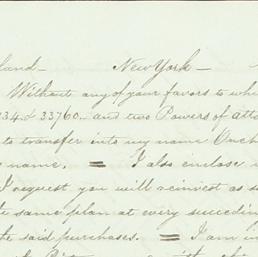 land — New York —
Without any of your favors to whi
34 & 33760 — and two Powers of atto
to transfer into my name One h
name. = I also enclose
I request you will reinvest as s
he same plan at every succeedin
he said purchases. = I am in